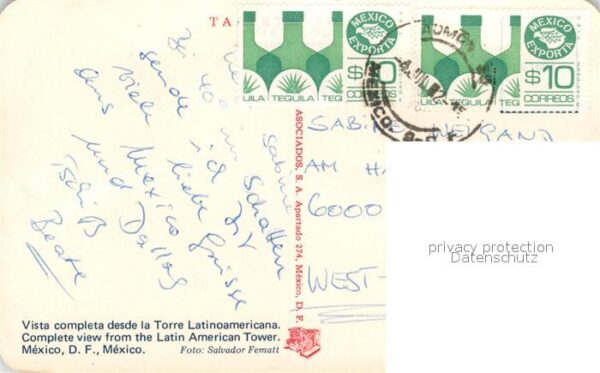 TA
MEXICO
EXPORTA
$10
CORREOS
TEQUILA TEQ
UILA
MEXICO
EXPORTA
$10
CORREOS
TEQUILA TEQ
UILA
MEXICO
ASOCIADOS, S. A. Apartado 274, México, D. F.
liebe Sabine
Bei 40° im Schatten
sende ich Dir
viele liebe Grüsse
aus Mexico
und Dallas
Tschüß
Beate
SABINE WEIGAND
AM H
6000
WEST-
privacy protection
Datenschutz
Vista completa desde la Torre Latinoamericana.
Complete view from the Latin American Tower.
México, D. F., México.
Foto: Salvador Fematt